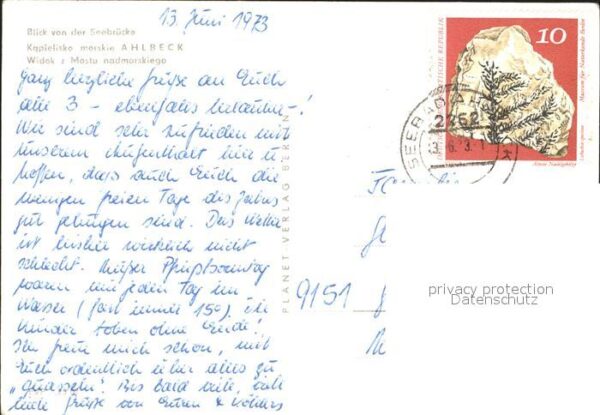 13. Juni 1973
Blick von der Seebrücke
Kąpielisko morskie AHLBECK
Widok z Mostu nadmorskiego
ganz herzliche Grüße an Euch
alle 3 - ebenfalls Bekannte-!
Wir sind sehr zufrieden mit
unserem Aufenthalt hier u.
hoffen, dass auch Euch die
wenigen freien Tage des Jahres
gut gelungen sind. Das Wetter
ist bisher wirklich nicht
schlecht. Außer Pfingstsonntag
waren wir jeden Tag im
Wasser (fast immer 15°), die
Kinder toben ohne Ende!
Ich freue mich schon, mit
Euch ordentlich über alles zu
"quasseln". Bis bald viele, viele
liebe Grüße von Euren
PLANET VERLAG BERLIN
9151
10
DEUTSCHE DEMOKRATISCHE REPUBLIK
Museum für Naturkunde Berlin
SEEBAD
2252
privacy protection
Datenschutz